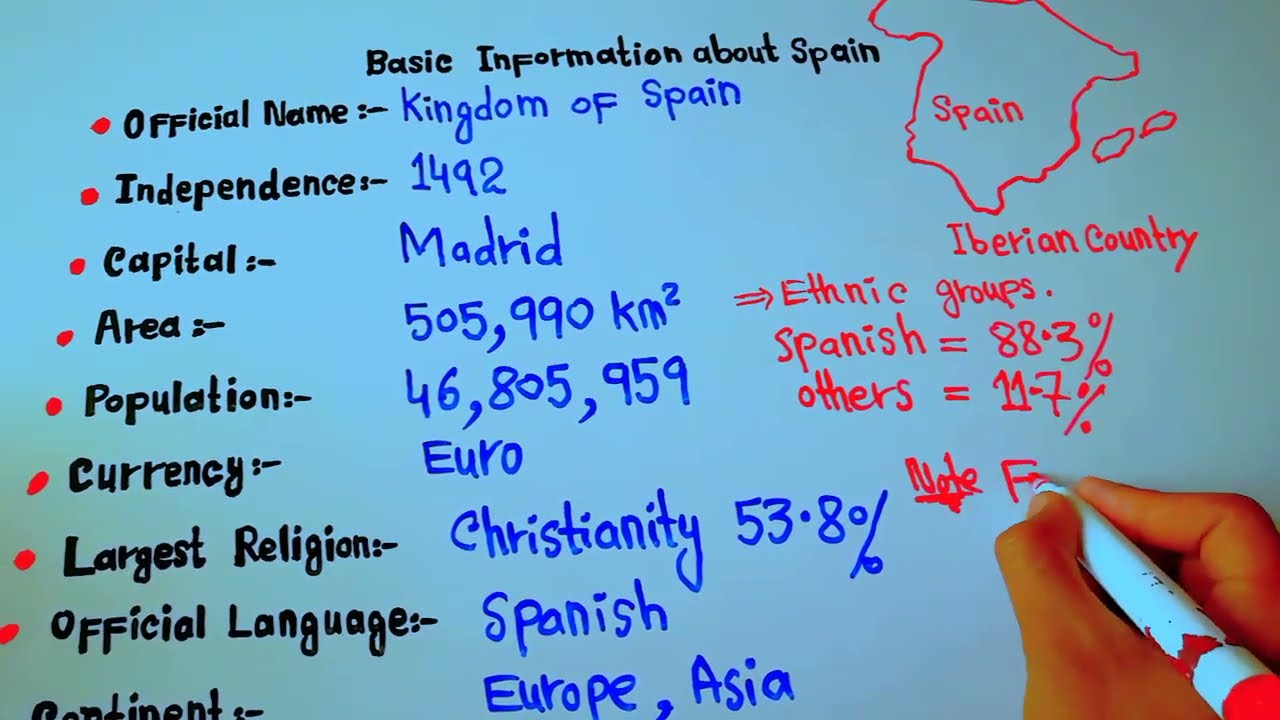 Basic Information about Spain
• Official Name:- Kingdom of Spain
• Independence:- 1492
• Capital:- Madrid
• Area:- 505,990 km²
• Population:- 46,805,959
• Currency:- Euro
• Largest Religion:- Christianity 53.8%
• Official Language:- Spanish
Continent:- Europe, Asia
Spain
Iberian Country
⇒ Ethnic groups.
Spanish = 88.3%
others = 11.7%
Note